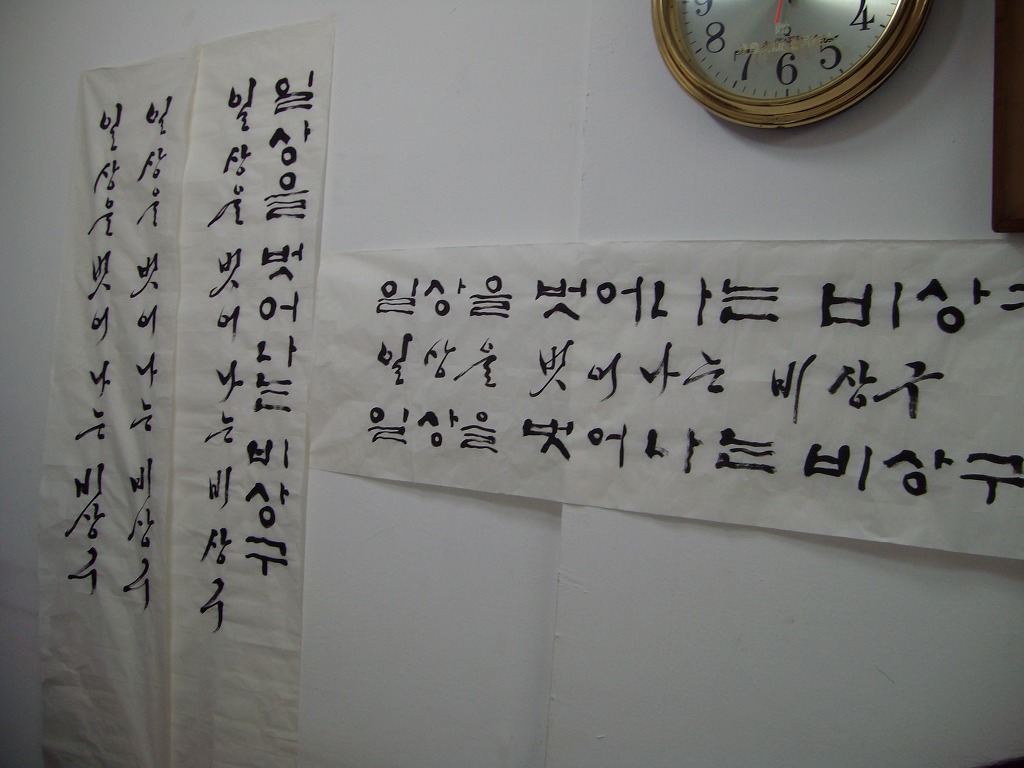 일상을 벗어나는 비상구
일상을 벗어나는 비상구
일상을 벗어나는 비상구
일상을 벗어나는 비상구
일상을 벗어나는 비상구
일상을 벗어나는 비상구
일상을 벗어나는 비상구
9 8 7 6 5 4